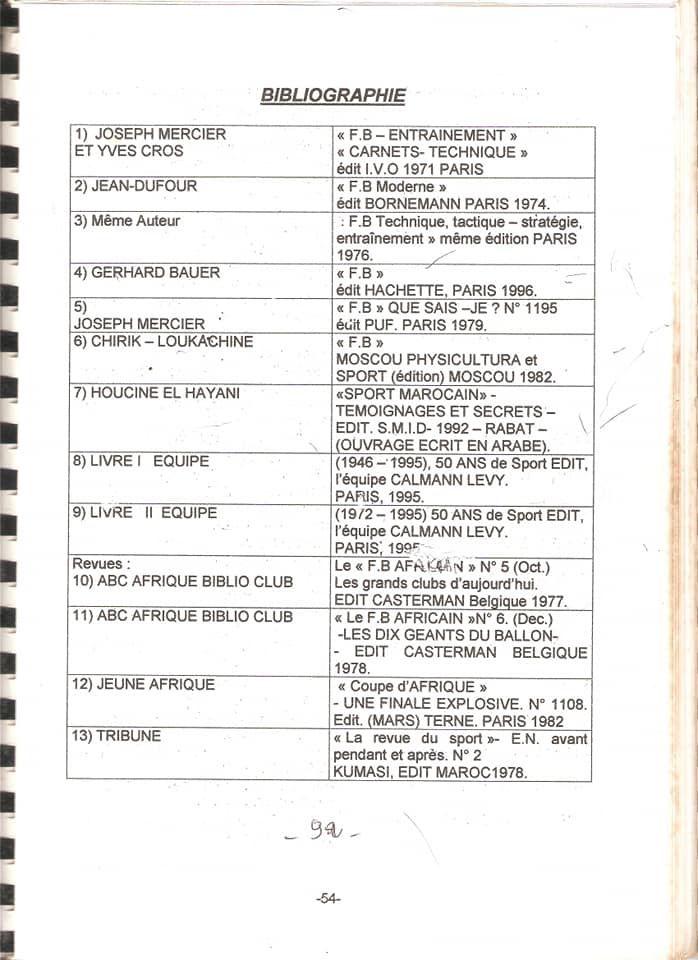 BIBLIOGRAPHIE
1) JOSEPH MERCIER
ET YVES CROS
« F.B – ENTRAINEMENT »
« CARNETS- TECHNIQUE »
édit I.V.O 1971 PARIS
2) JEAN-DUFOUR
« F.B Moderne »
édit BORNEMANN PARIS 1974.
3) Même Auteur
: F.B Technique, tactique – stratégie,
entraînement » même édition PARIS
1976.
4) GERHARD BAUER
« F.B »
édit HACHETTE, PARIS 1996.
5)
JOSEPH MERCIER
« F.B » QUE SAIS –JE ? N° 1195
édit PUF. PARIS 1979.
6) CHIRIK – LOUKACHINE
« F.B »
MOSCOU PHYSICULTURA et
SPORT (édition) MOSCOU 1982.
7) HOUCINE EL HAYANI
«SPORT MAROCAIN» -
TEMOIGNAGES ET SECRETS –
EDIT. S.M.I.D- 1992 – RABAT –
(OUVRAGE ECRIT EN ARABE).
8) LIVRE I EQUIPE
(1946 – 1995), 50 ANS de Sport EDIT,
l'équipe CALMANN LEVY.
PARIS, 1995.
9) LIVRE II EQUIPE
(19/2 – 1995) 50 ANS de Sport EDIT,
l'équipe CALMANN LEVY.
PARIS, 1995
Revues :
10) ABC AFRIQUE BIBLIO CLUB
Le « F.B AFRICAIN » N° 5 (Oct.)
Les grands clubs d'aujourd'hui.
EDIT CASTERMAN Belgique 1977.
11) ABC AFRIQUE BIBLIO CLUB
« Le F.B AFRICAIN »N° 6. (Dec.)
-LES DIX GEANTS DU BALLON-
- EDIT CASTERMAN BELGIQUE
1978.
12) JEUNE AFRIQUE
« Coupe d'AFRIQUE »
- UNE FINALE EXPLOSIVE. N° 1108.
Edit. (MARS) TERNE. PARIS 1982
13) TRIBUNE
« La revue du sport »- E.N. avant
pendant et après. N° 2
KUMASI, EDIT MAROC1978.
-54-